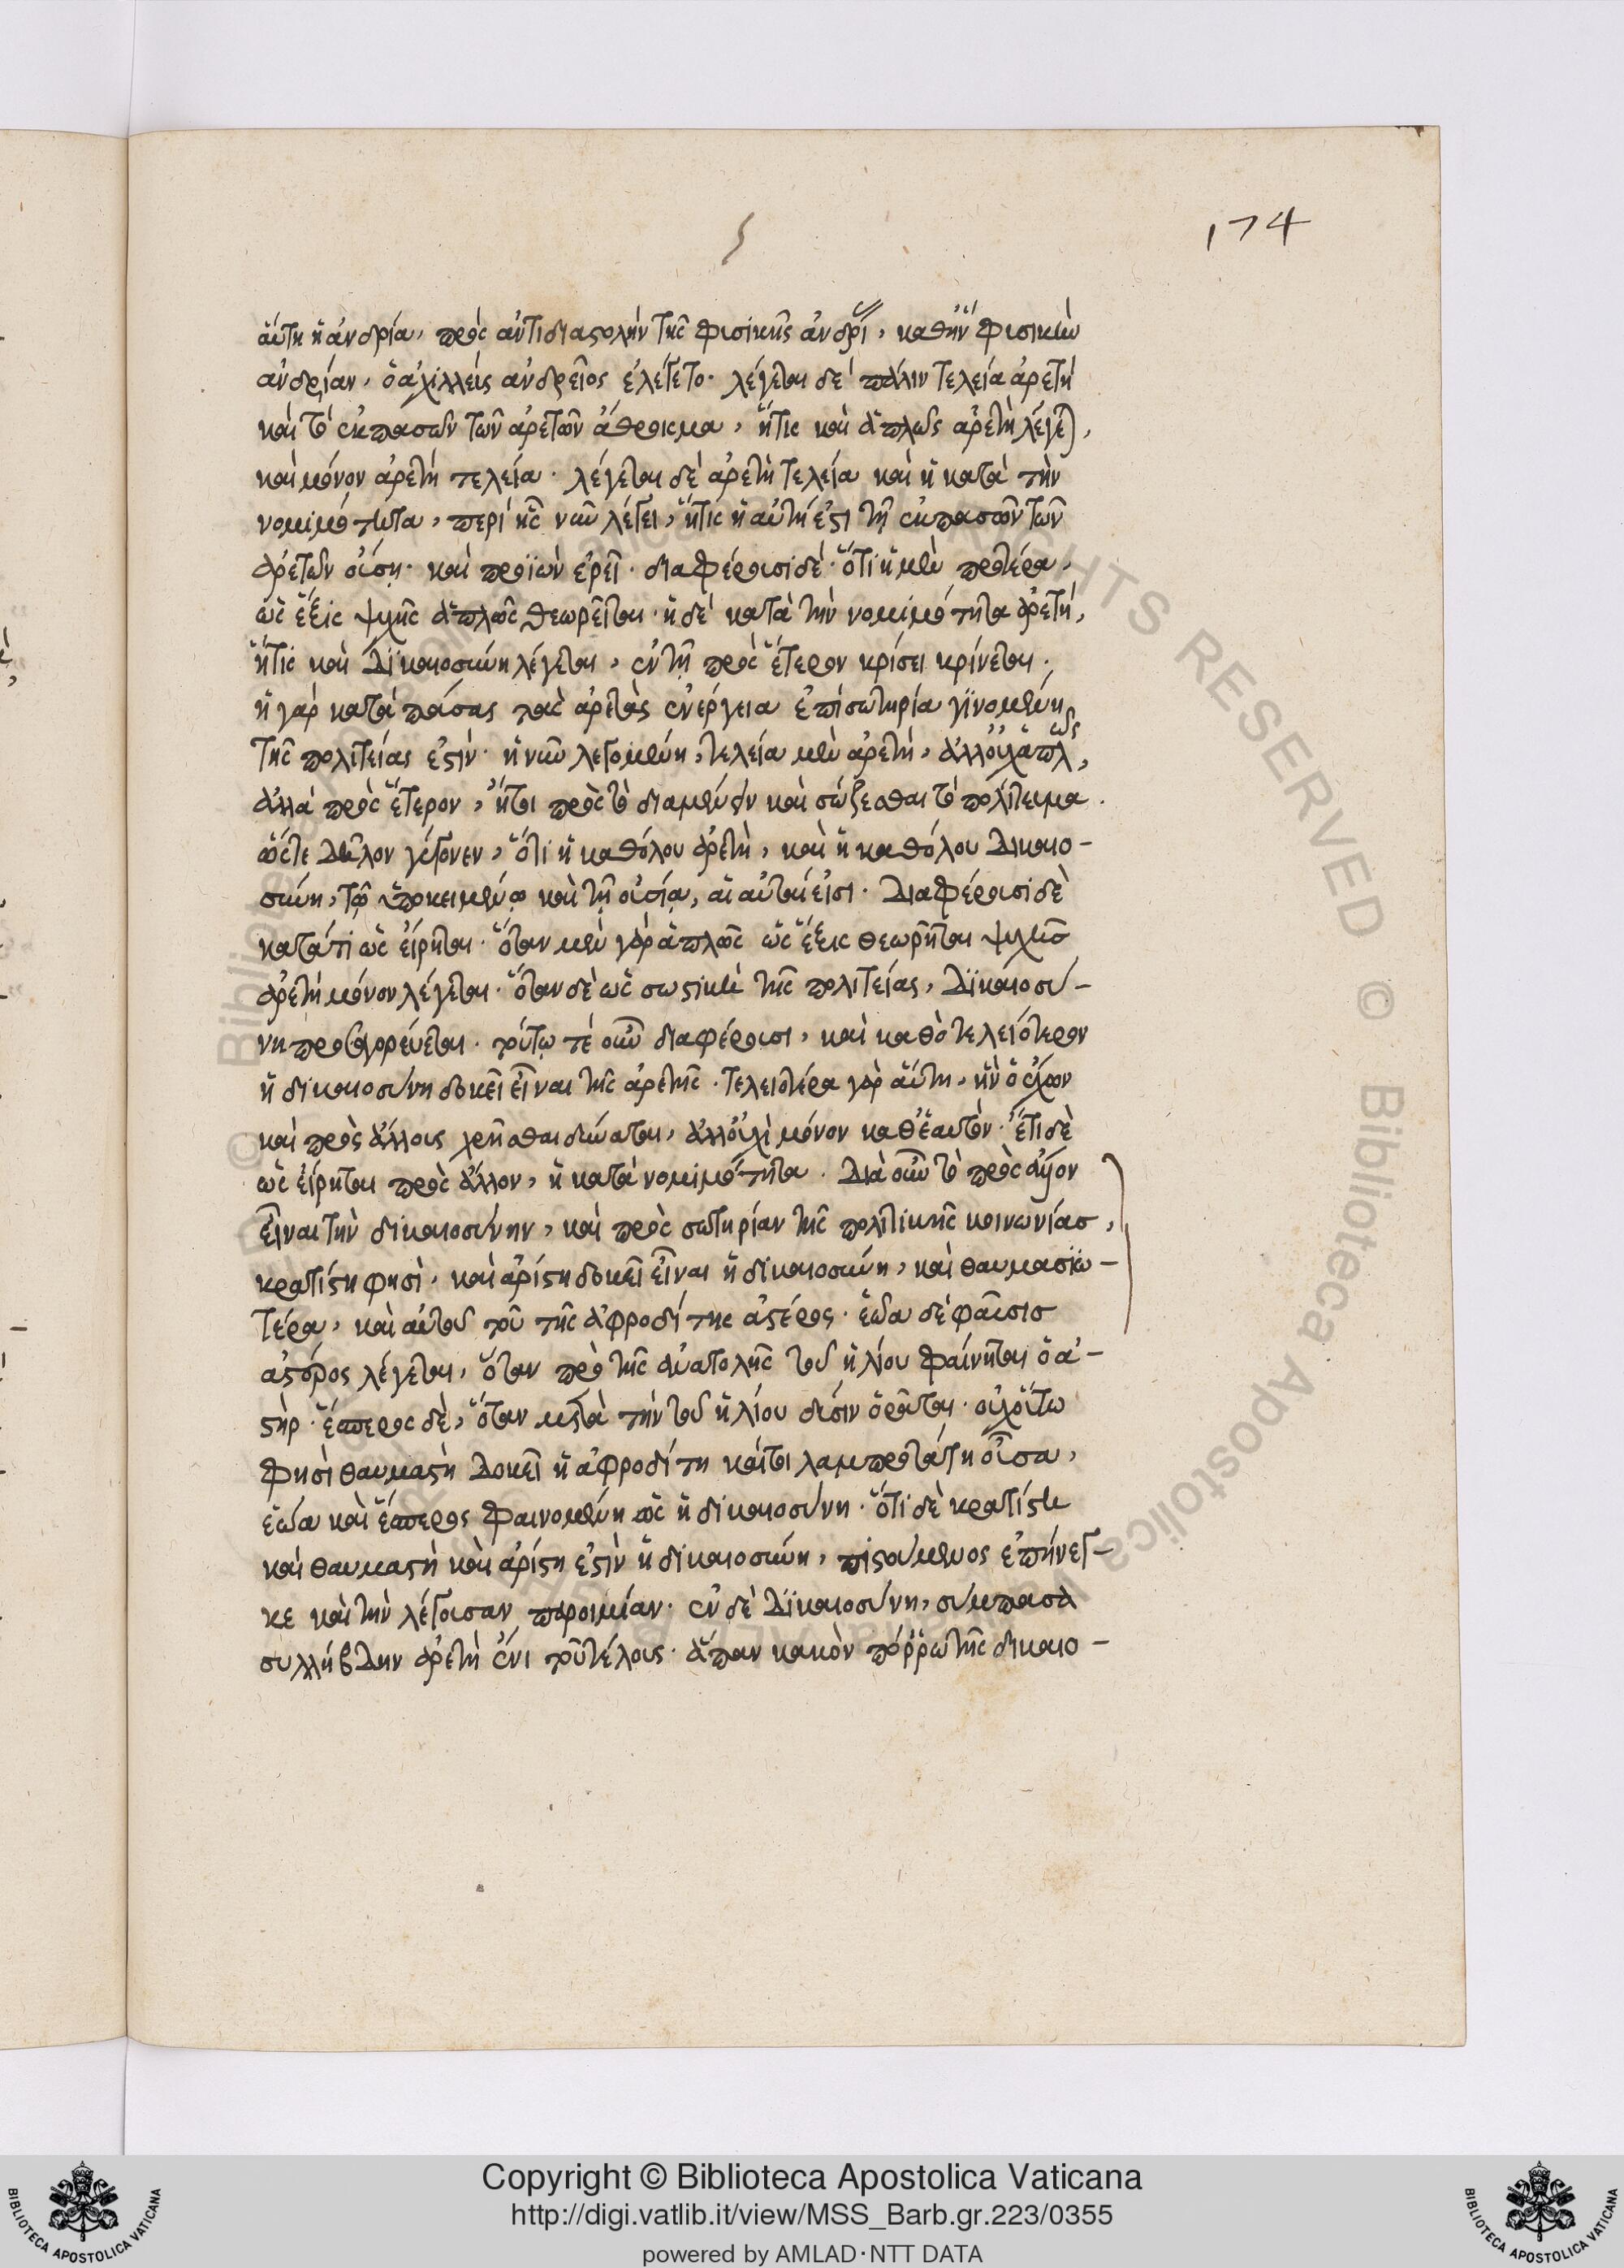 174
αὕτη ἡ ἀνδρία, πρὸς ἀντιδιαστολὴν τῆς φυσικῆς ἀνδρί, καθ' ἣν φυσικὴν
ἀνδρίαν, ὁ ἀχιλλεὺς ἀνδρεῖος ἐλέγετο. λέγεται δὲ πάλιν τελεία ἀρετὴ
καὶ τὸ ἐκ πασῶν τῶν ἀρετῶν ἄθροισμα, ἥτις καὶ ἁπλῶς ἀρετὴ λέγεται,
καὶ μόνον ἀρετὴ τελεία. λέγεται δὲ ἀρετὴ τελεία καὶ ἡ κατὰ τὴν
νομιμότητα, περὶ ἧς νῦν λέγει, ἥτις ἡ αὐτή ἐστι τῇ ἐκ πασῶν τῶν
ἀρετῶν οὔσῃ. καὶ προϊὼν ἐρεῖ. διαφέρουσι δέ. ὅτι ἡ μὲν προτέρα,
ὡς ἕξις ψυχῆς ἁπλῶς θεωρεῖται. ἡ δὲ κατὰ τὴν νομιμότητα ἀρετή,
ἥτις καὶ δικαιοσύνη λέγεται, ἐν τῇ πρὸς ἕτερον κρίσει κρίνεται.
ἡ γὰρ κατὰ πάσας τὰς ἀρετὰς ἐνέργεια ἐπὶ σωτηρία γινομένη
τῆς πολιτείας ἐστὶν. ἡ νῦν λεγομένη, τελεία μὲν ἀρετή, ἀλλ' οὐχ ἁπλῶς,
ἀλλὰ πρὸς ἕτερον, ἤτοι πρὸς τὸ διαμένειν καὶ σώζεσθαι τὸ πολίτευμα.
ὥστε δῆλον γέγονεν, ὅτι ἡ καθόλου ἀρετὴ, καὶ ἡ καθόλου δικαιο-
σύνη, τῷ ὑποκειμένῳ καὶ τῇ οὐσίᾳ, αἱ αὐταί εἰσι. διαφέρουσι δὲ
κατά τι ὡς εἴρηται. ὅταν μὲν γὰρ ἁπλῶς ὡς ἕξις θεωρῆται ψυχῆς
ἀρετὴ μόνον λέγεται. ὅταν δὲ ὡς σωστικὴ τῆς πολιτείας, δικαιοσύ-
νη προσαγορεύεται. τούτῳ τε οὖν διαφέρουσι, καὶ καθὸ τελειότερον
ἡ δικαιοσύνη δοκεῖ εἶναι τῆς ἀρετῆς. τελειοτέρα γὰρ αὕτη, ἣν ὁ ἔχων
καὶ πρὸς ἄλλους χρῆσθαι δύναται, ἀλλ' οὐχὶ μόνον καθ' ἑαυτὸν. ἔτι δὲ
ὡς εἴρηται πρὸς ἄλλον, ἡ κατὰ νομιμότητα. διὰ οὖν τὸ πρὸς ἄλλον
εἶναι τὴν δικαιοσύνην, καὶ πρὸς σωτηρίαν τῆς πολιτικῆς κοινωνίας,
κρατίστη φησὶ, καὶ ἀρίστη δοκεῖ εἶναι ἡ δικαιοσύνη, καὶ θαυμασιω-
τέρα, καὶ αὐτοῦ τοῦ τῆς ἀφροδίτης ἀστέρος. ἑῴα δὲ φαῦσις
ἀστέρος λέγεται, ὅταν πρὸ τῆς ἀνατολῆς τοῦ ἡλίου φαίνηται ὁ ἀ-
στήρ. ἕσπερος δὲ, ὅταν μετὰ τὴν τοῦ ἡλίου δύσιν ὁρᾶται. οὐχ οὕτω
φησὶ θαυμαστὴ δοκεῖ ἡ ἀφροδίτη καίτοι λαμπροτάτη οὖσα,
ἑῴα καὶ ἕσπερος φαινομένη ὡς ἡ δικαιοσύνη. ὅτι δὲ κρατίστη
καὶ θαυμαστὴ καὶ ἀρίστη ἐστὶν ἡ δικαιοσύνη, πιστούμενος ἐπήνεγ-
κε καὶ τὴν λέγουσαν παροιμίαν. ἐν δὲ δικαιοσύνη, σύμπασα
συλλήβδην ἀρετὴ ἔνι τοῦ τέλους. ἅπαν κακὸν πόῤῥω τῆς δικαιο-
Copyright © Biblioteca Apostolica Vaticana
http://digi.vatlib.it/view/MSS_Barb.gr.223/0355
powered by AMLAD·NTT DATA